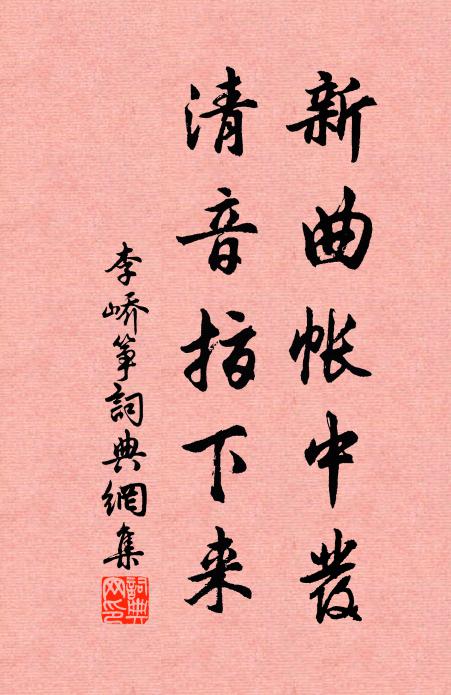 新曲帐中發
清音指下来
李峤筝詞典網集
詞典網印